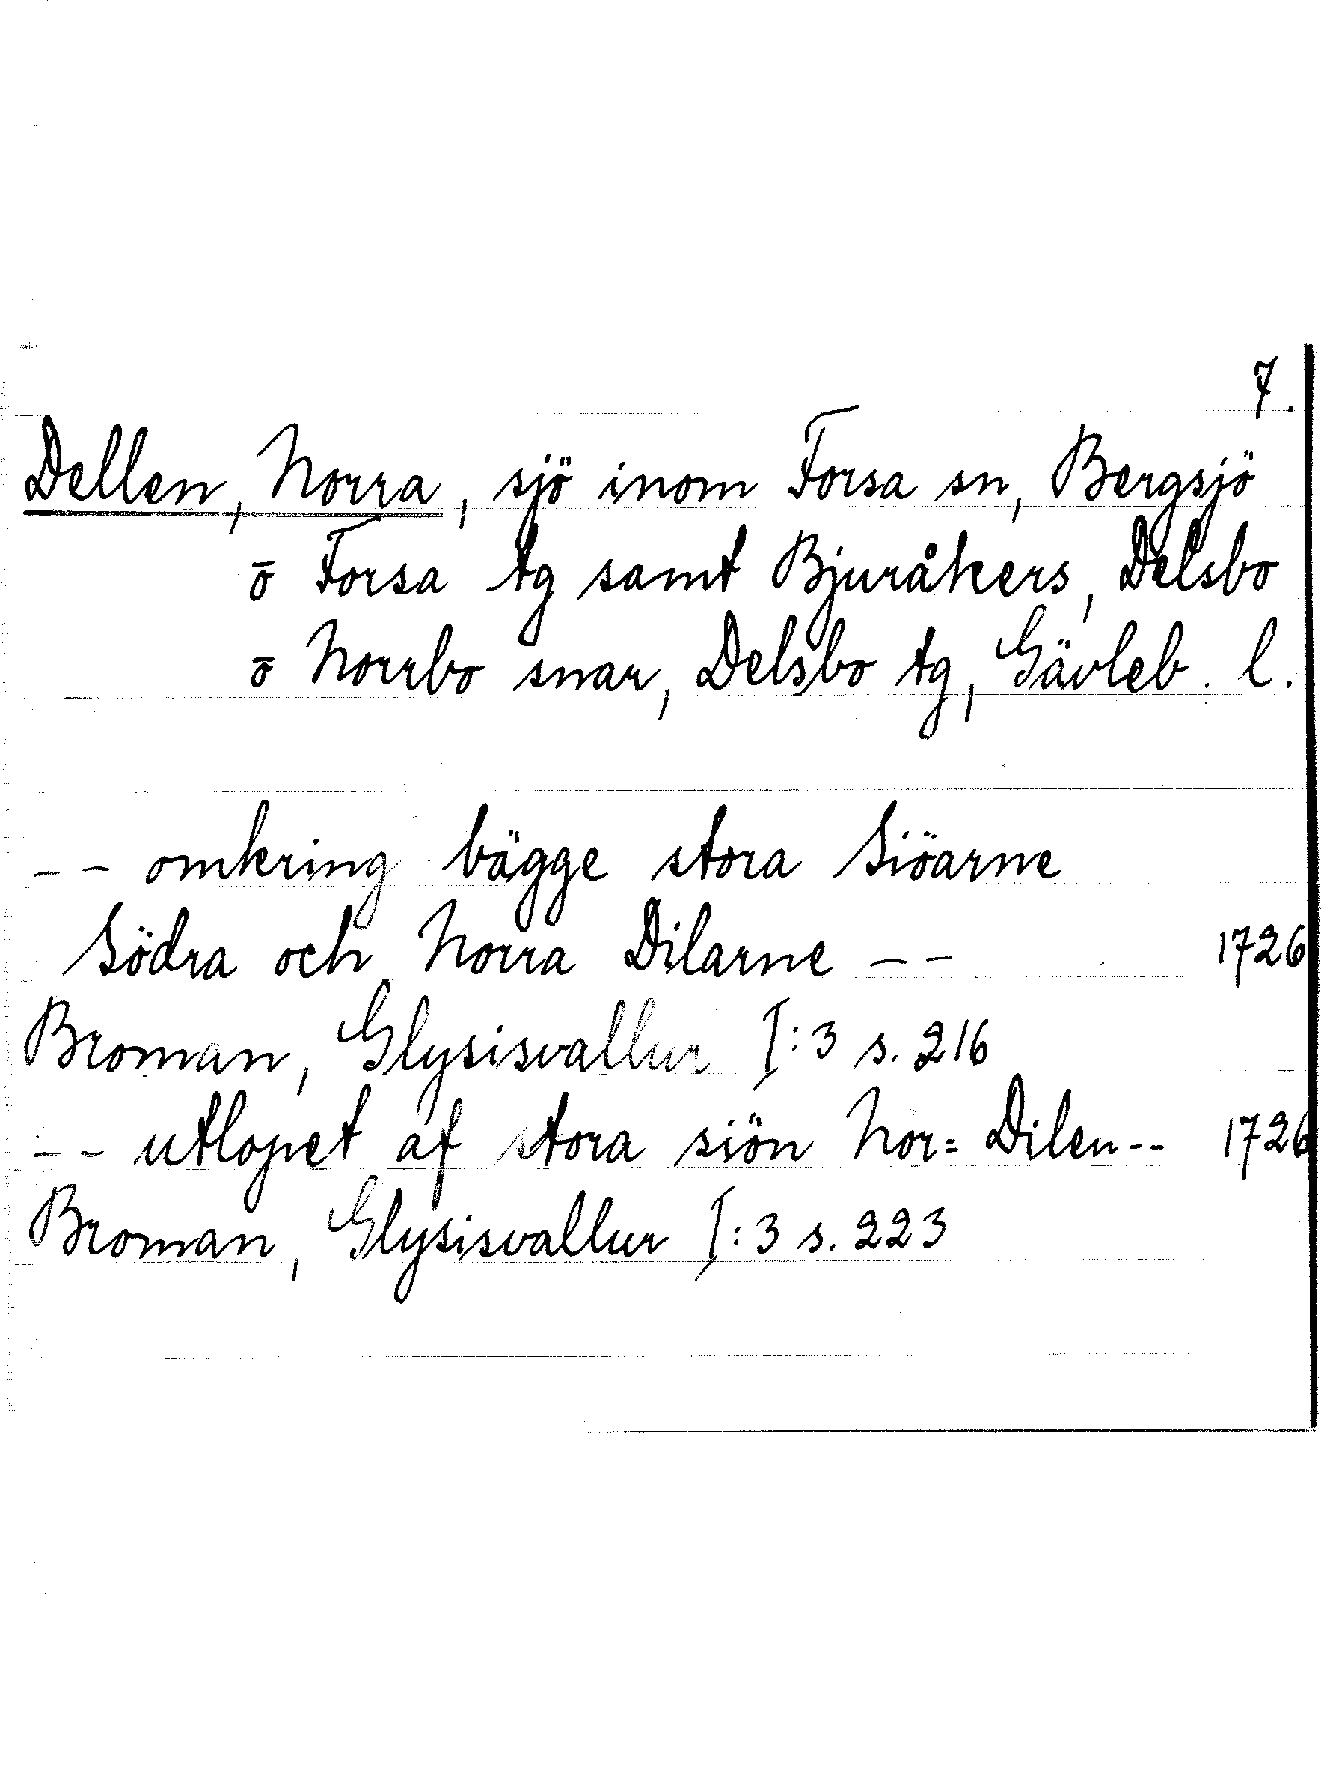 7.
Dellen, Norra, sjö inom Forsa sn, Bergsjö
o Forsa tg samt Bjuråkers, Delsbo
o Norrbo snar, Delsbo tg, Gävleb. l.
-- omkring bägge stora Siöarne
Södra och Norra Dilarne -- 1726
Broman, Glysisvallur I:3 s. 216
-- utlopet af stora siön Nor= Dilen-- 1726
Broman, Glysisvallur I:3 s. 223